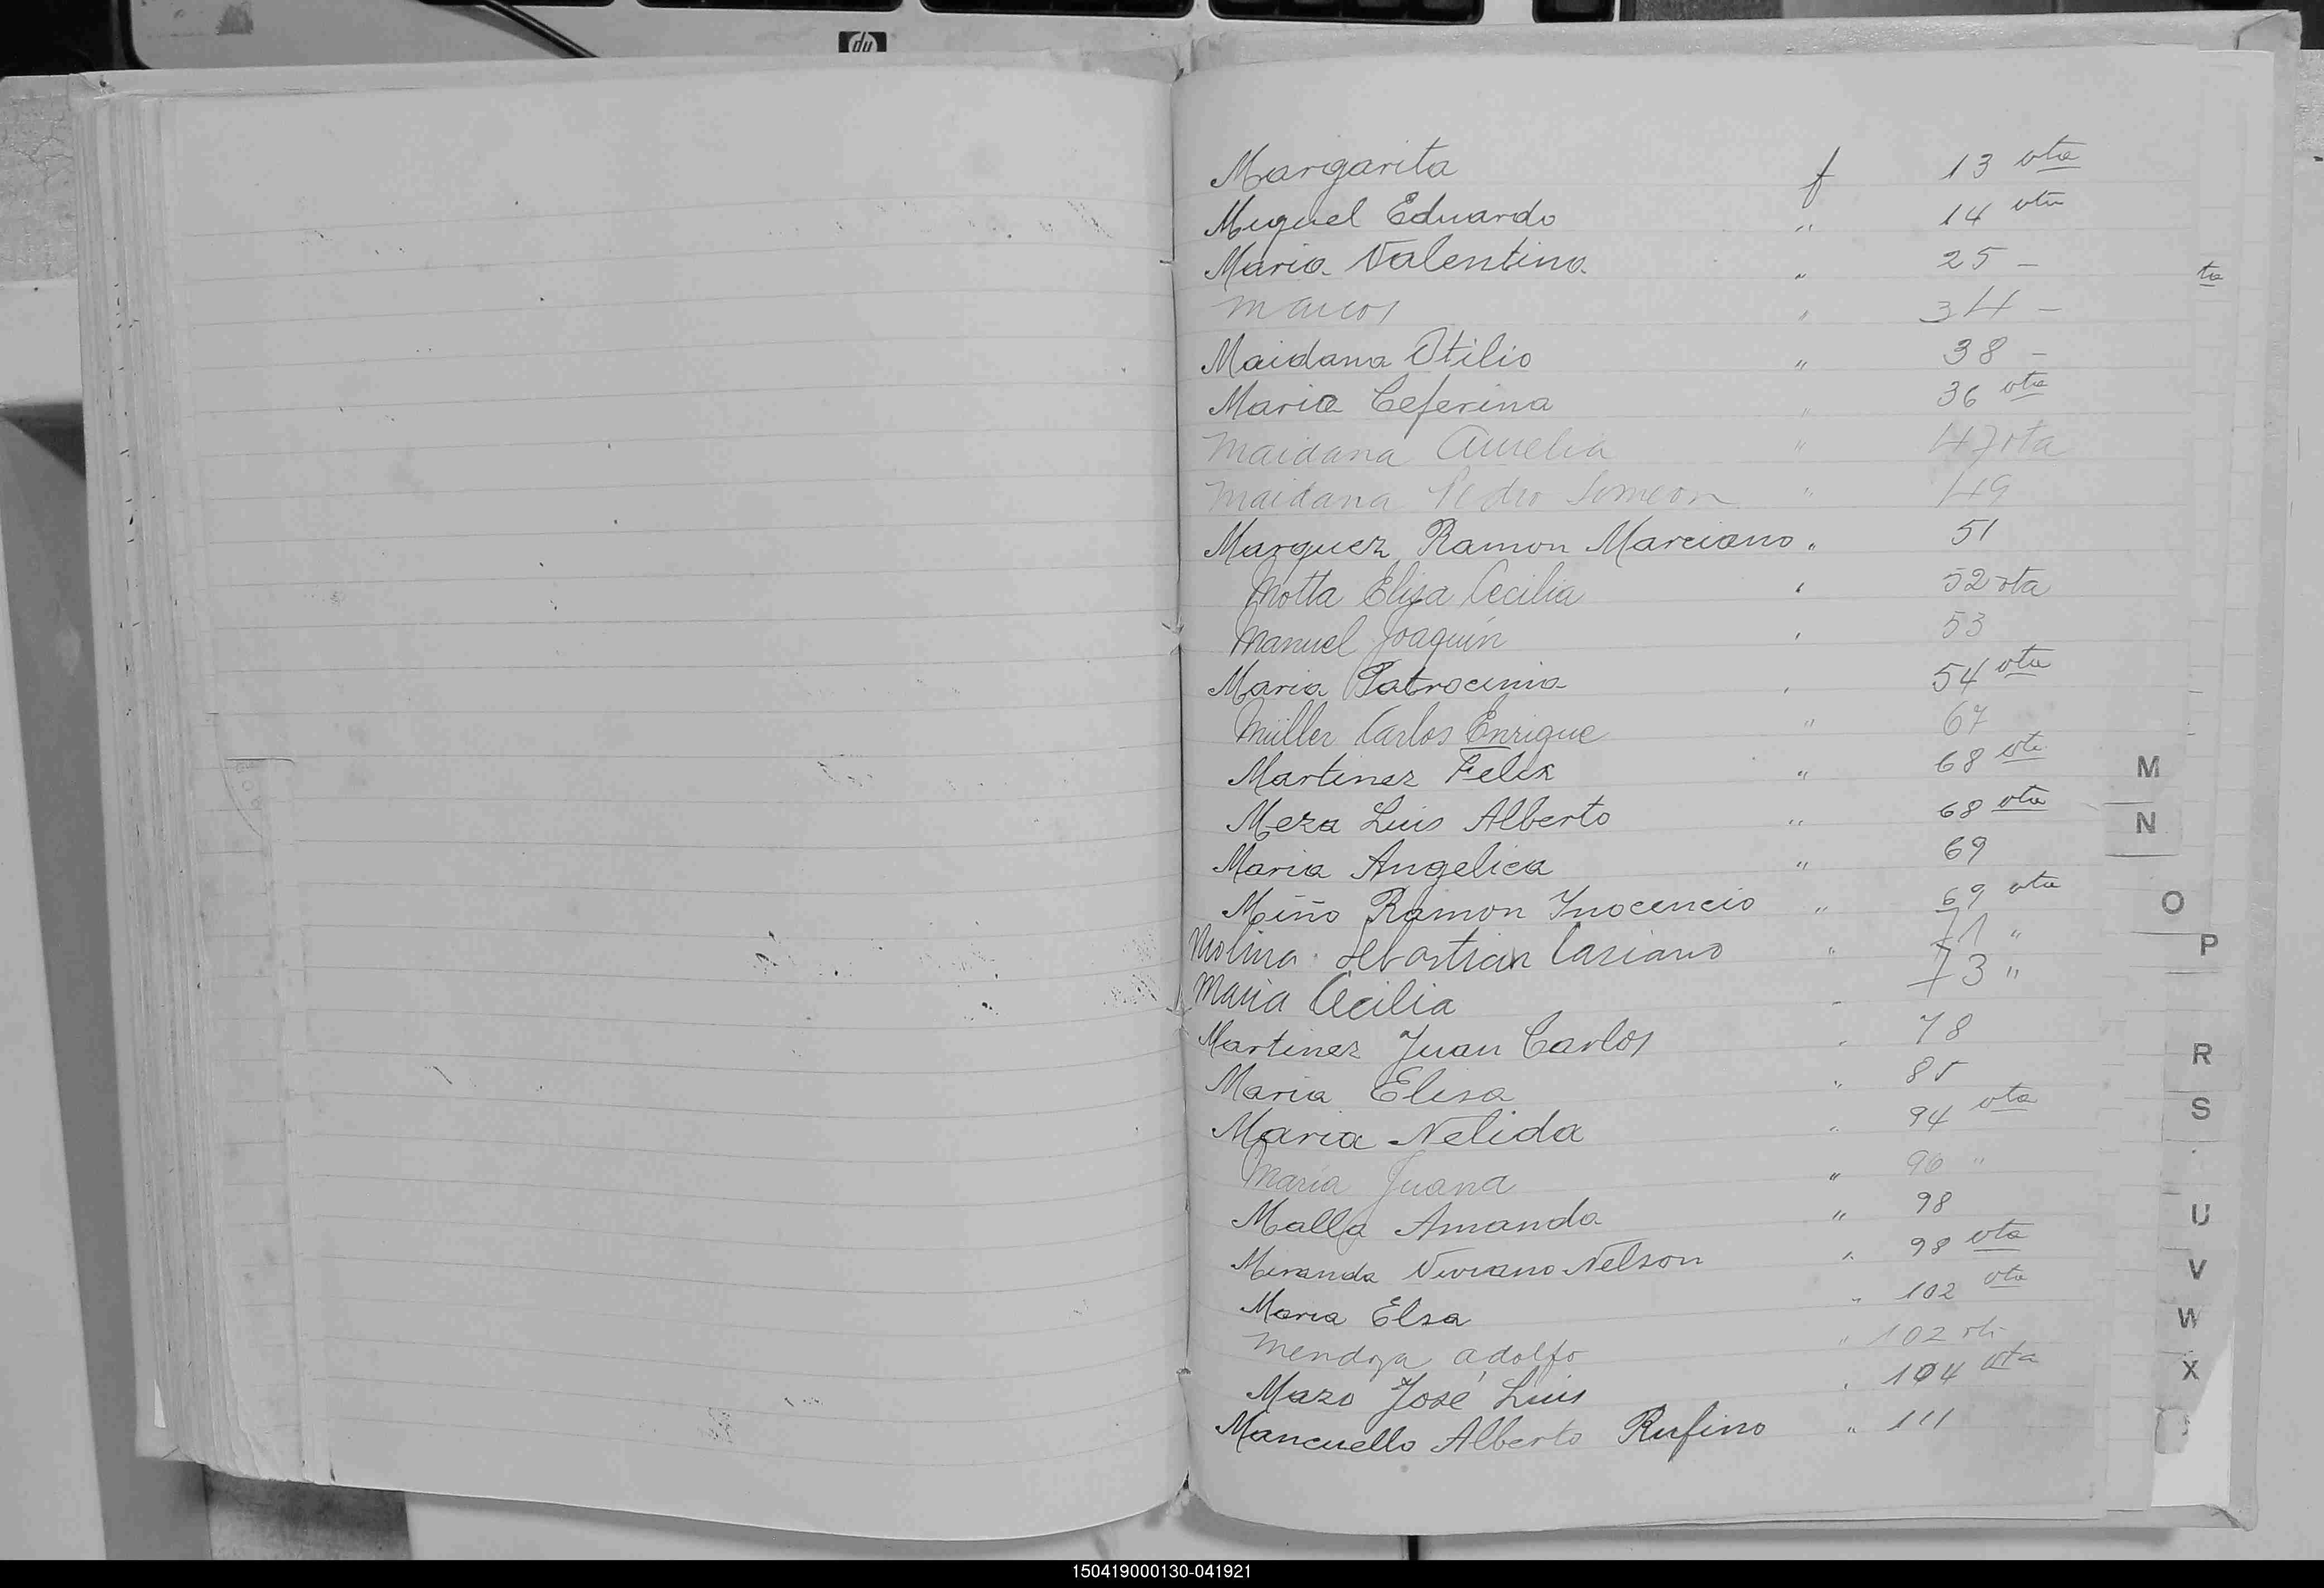 hp
Margarita f 13 vta
Miguel Eduardo " 14 vta
Maria Valentina " 25 -
ta
Marcos " 34 -
Maidana Otilio " 38 -
Maria Ceferina " 36 vta
Maidana Aurelia " 47 vta
Maidana Pedro Simeon " 49
Marquez Ramon Marciano " 51
Motta Elisa Cecilia " 52 vta
Manuel Joaquín " 53
Maria Patrocinia " 54 vta
Müller Carlos Enrique " 67
Martinez Felix " 68 vta
M
Meza Luis Alberto " 68 vta
N
Maria Angelica " 69
Miño Ramon Inocencio " 69 vta
O
Molina Sebastian Casiano " 71 "
P
Maria Cecilia " 73 "
Martinez Juan Carlos " 78
R
Maria Elisa " 85
S
Maria Nelida " 94 vta
María Juana " 96 "
Malla Amanda " 98
U
Miranda Viviano Nelson " 98 vta
V
Maria Elsa " 102 vta
W
Mendoza Adolfo " 102 vta
X
Mazo José Luis " 104 vta
Mancuello Alberto Rufino " 111
150419000130-041921